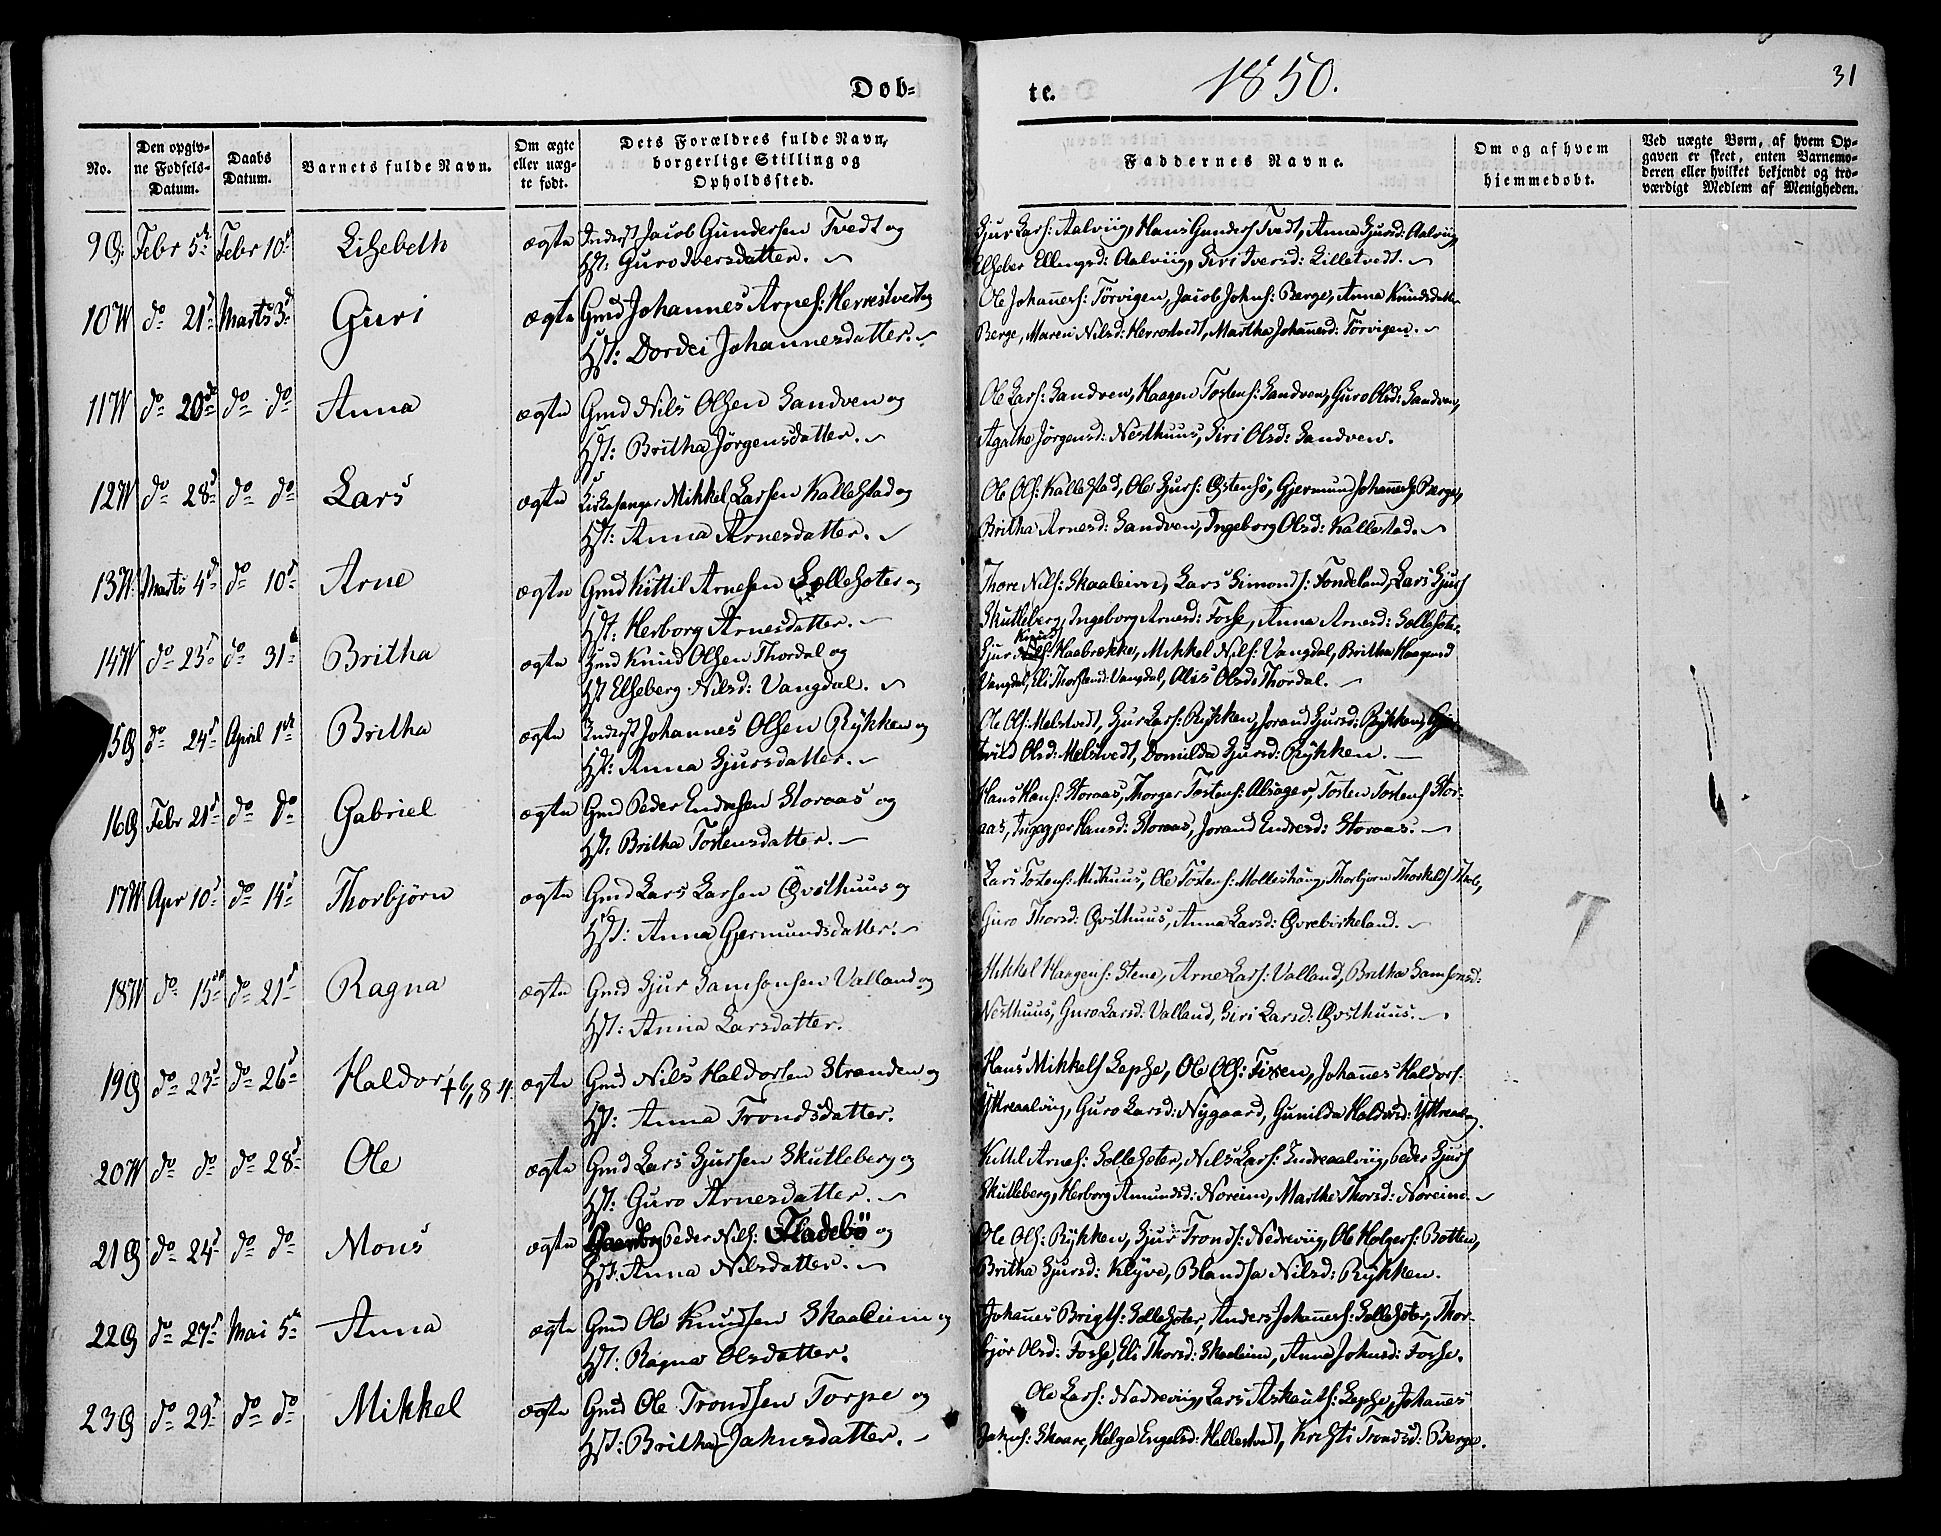 Døb-
te.
1850.
31
No.
Den opgiv-
ne Fødsels-
Datum.
Daabs
Datum.
Barnets fulde Navn.
Om ægte
eller uæg-
te født.
Dets Forældres fulde Navn,
borgerlige Stilling og
Opholdssted.
Faddernes Navne.
Om og af hvem
hjemmedøbt.
Ved uægte Børn, af hvem Op-
gaven er skeet, enten Barnemo-
deren eller hvilket bekjendt og tro-
værdigt Medlem af Menigheden.
9 Febr 5 Febr 10 Lisebeth ægte Inderst Jacob Gundersen Tvedt og
Hst: Guro Iversdatter.
Sjur Lars: Aalviig, Hans Gunders Tvedt, Anna Sjursd: Aalviig
Elseber Ellingsd: Aalviig, Siri Iversd: Lilletvedt.
10W do 21 Marts 3 Guri ægte Gmd Johannes Arnes: Herrestvedt og
Hst: Dordei Johannesdatter.
Ole Johanness: Törvigen, Jacob Johns: Berge, Anna Knudsdatter
Berge, Maren Nilsd: Herrestvedt, Martha Johannesd: Törvigen.
11W do 20 do do Anna ægte Gmd Nils Olsen Sandven og
Hst: Britha Jörgensdatter.
Ole Lars: Sandven, Haagen Tostens: Sandven, Guro Olsd: Sandven,
Agathe Jörgensd: Nesthuus, Siri Olsd: Sandven.
12W do 28 do do Lars ægte Kirkesanger Mikkel Larsen Kallestad og
Hst: Anna Arnesdatter.
Ole Ols: Kallestad, Ole Sjurs: Östensö, Gjermund Johannes: Berge,
Britha Arnesd: Sandven, Ingeborg Olsd: Kallestad.
13W Marts 4 do 10 Arne ægte Gmd Kittil Arnesen Sollesæter og
Hst: Herborg Arnesdatter.
Thore Nils: Skaaleim, Lars Simonds: Tondeland, Lars Sjurs
Skutleberg, Ingeborg Arnesd: Fosse, Anna Arnesd: Sollesæter
14W do 23 do 31 Britha ægte Gmd Knud Olsen Thordal og
Hst Elseberg Nilsd: Vangdal.
Knuds
Sjur Haabrekke, Mikkel Nils: Vangdal, Britha Haagensd
Vangdal, Eli Vangdal, Alis Olsd: Thordal.
15 do 24 April 1 Britha ægte Inderst Johannes Olsen Rykken og
Hst: Anna Sjursdatter.
Ole Ols: Melstvedt, Sjur Lars: Rykken, Jorand Sjursd: Rykken,
trild Olsd: Melstvedt, Domilda Sjursd: Rykken.
16 Febr 21 do do Gabriel ægte Gmd Peder Endresen Storaas og
Hst: Britha Tostensdatter.
Hans Hans: Storaas, Thorger Tostens: Alsager, Tosten Tostens Stor-
aas, Hansd: Storaas, Jorand Endresd: Storaas.
17W Apr 10 do 14 Thorbjörn ægte Gmd Lars Larsen Övsthuus og
Hst: Anna Gjermundsdatter.
Lars Tostens: Midhuus, Ole Tostens: Molleshaug, Thorbjörn Thorkels
Guro Thorsd: Övsthuus, Anna Larsd: Övrebirkeland.
18W do 15 do 21 Ragna ægte Gmd Sjur Samsonsen Valland og
Hst: Anna Larsdatter.
Mikkel Haagens: Stene, Arne Lars: Valland, Britha Samsonsd:
Nesthuus, Guro Larsd: Valland, Siri Larsd: Övsthuus.
19 do 23 do 26 Haldor + 6/8 ægte Gmd Nils Haldorsen Stranden og
Hst: Anna Trondsdatter.
Hans Mikkels Lepse, Ole Ols: Tixen, Johannes Haldors:
Ytreaalviig, Guro Larsd: Nygaard, Gunilda Haldorsd: Ytreaalv
20W do do do 28 Ole ægte Gmd Lars Sjursen Skutleberg og
Hst: Guro Arnesdatter.
Kittil Arnes: Sollesæter, Nils Lars: Indreaalviig, Peder Sjurs
Skutleberg, Herborg Amundsd: Noreim, Marthe Thorsd: Noreim.
21 do 24 do do Mons ægte Peder Nils: Fladebö og
Hst: Anna Nilsdatter.
Ole Ols: Rykken, Sjur Tronds: Nedreviig, Ole Holgers: Botten,
Britha Sjursd: Klyve, Blandsa Nilsd: Rykken.
22 do 27 Mai 5 Anna ægte Gmd Ole Knudsen Skaaleim og
Hst: Ragna Olsdatter.
Johanes Brigts: Sollesæter, Anders Johannes: Sollesæter, Thor-
björ Olsd: Fosse, Eli Thorsd: Skaaleim, Anna Johnsd: Fosse.
23 do 29 do do Mikkel ægte Gmd Ole Trondsen Torpe og
Hst: Britha Jahnsdatter.
Ole Lars: Nedreviig, Lars Askouts: Lepse, Johannes
Jahns: Skaare, Helga Engelsd: Hellestvedt, Kristi Trondsd: Berge.